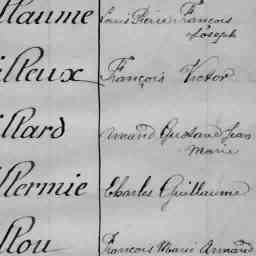 llaume Louis Pierre François
Joseph
illeux François Victor
illard Armand Gustave Jean
Marie
llermie Charles Guillaume
llou François Marie Armand